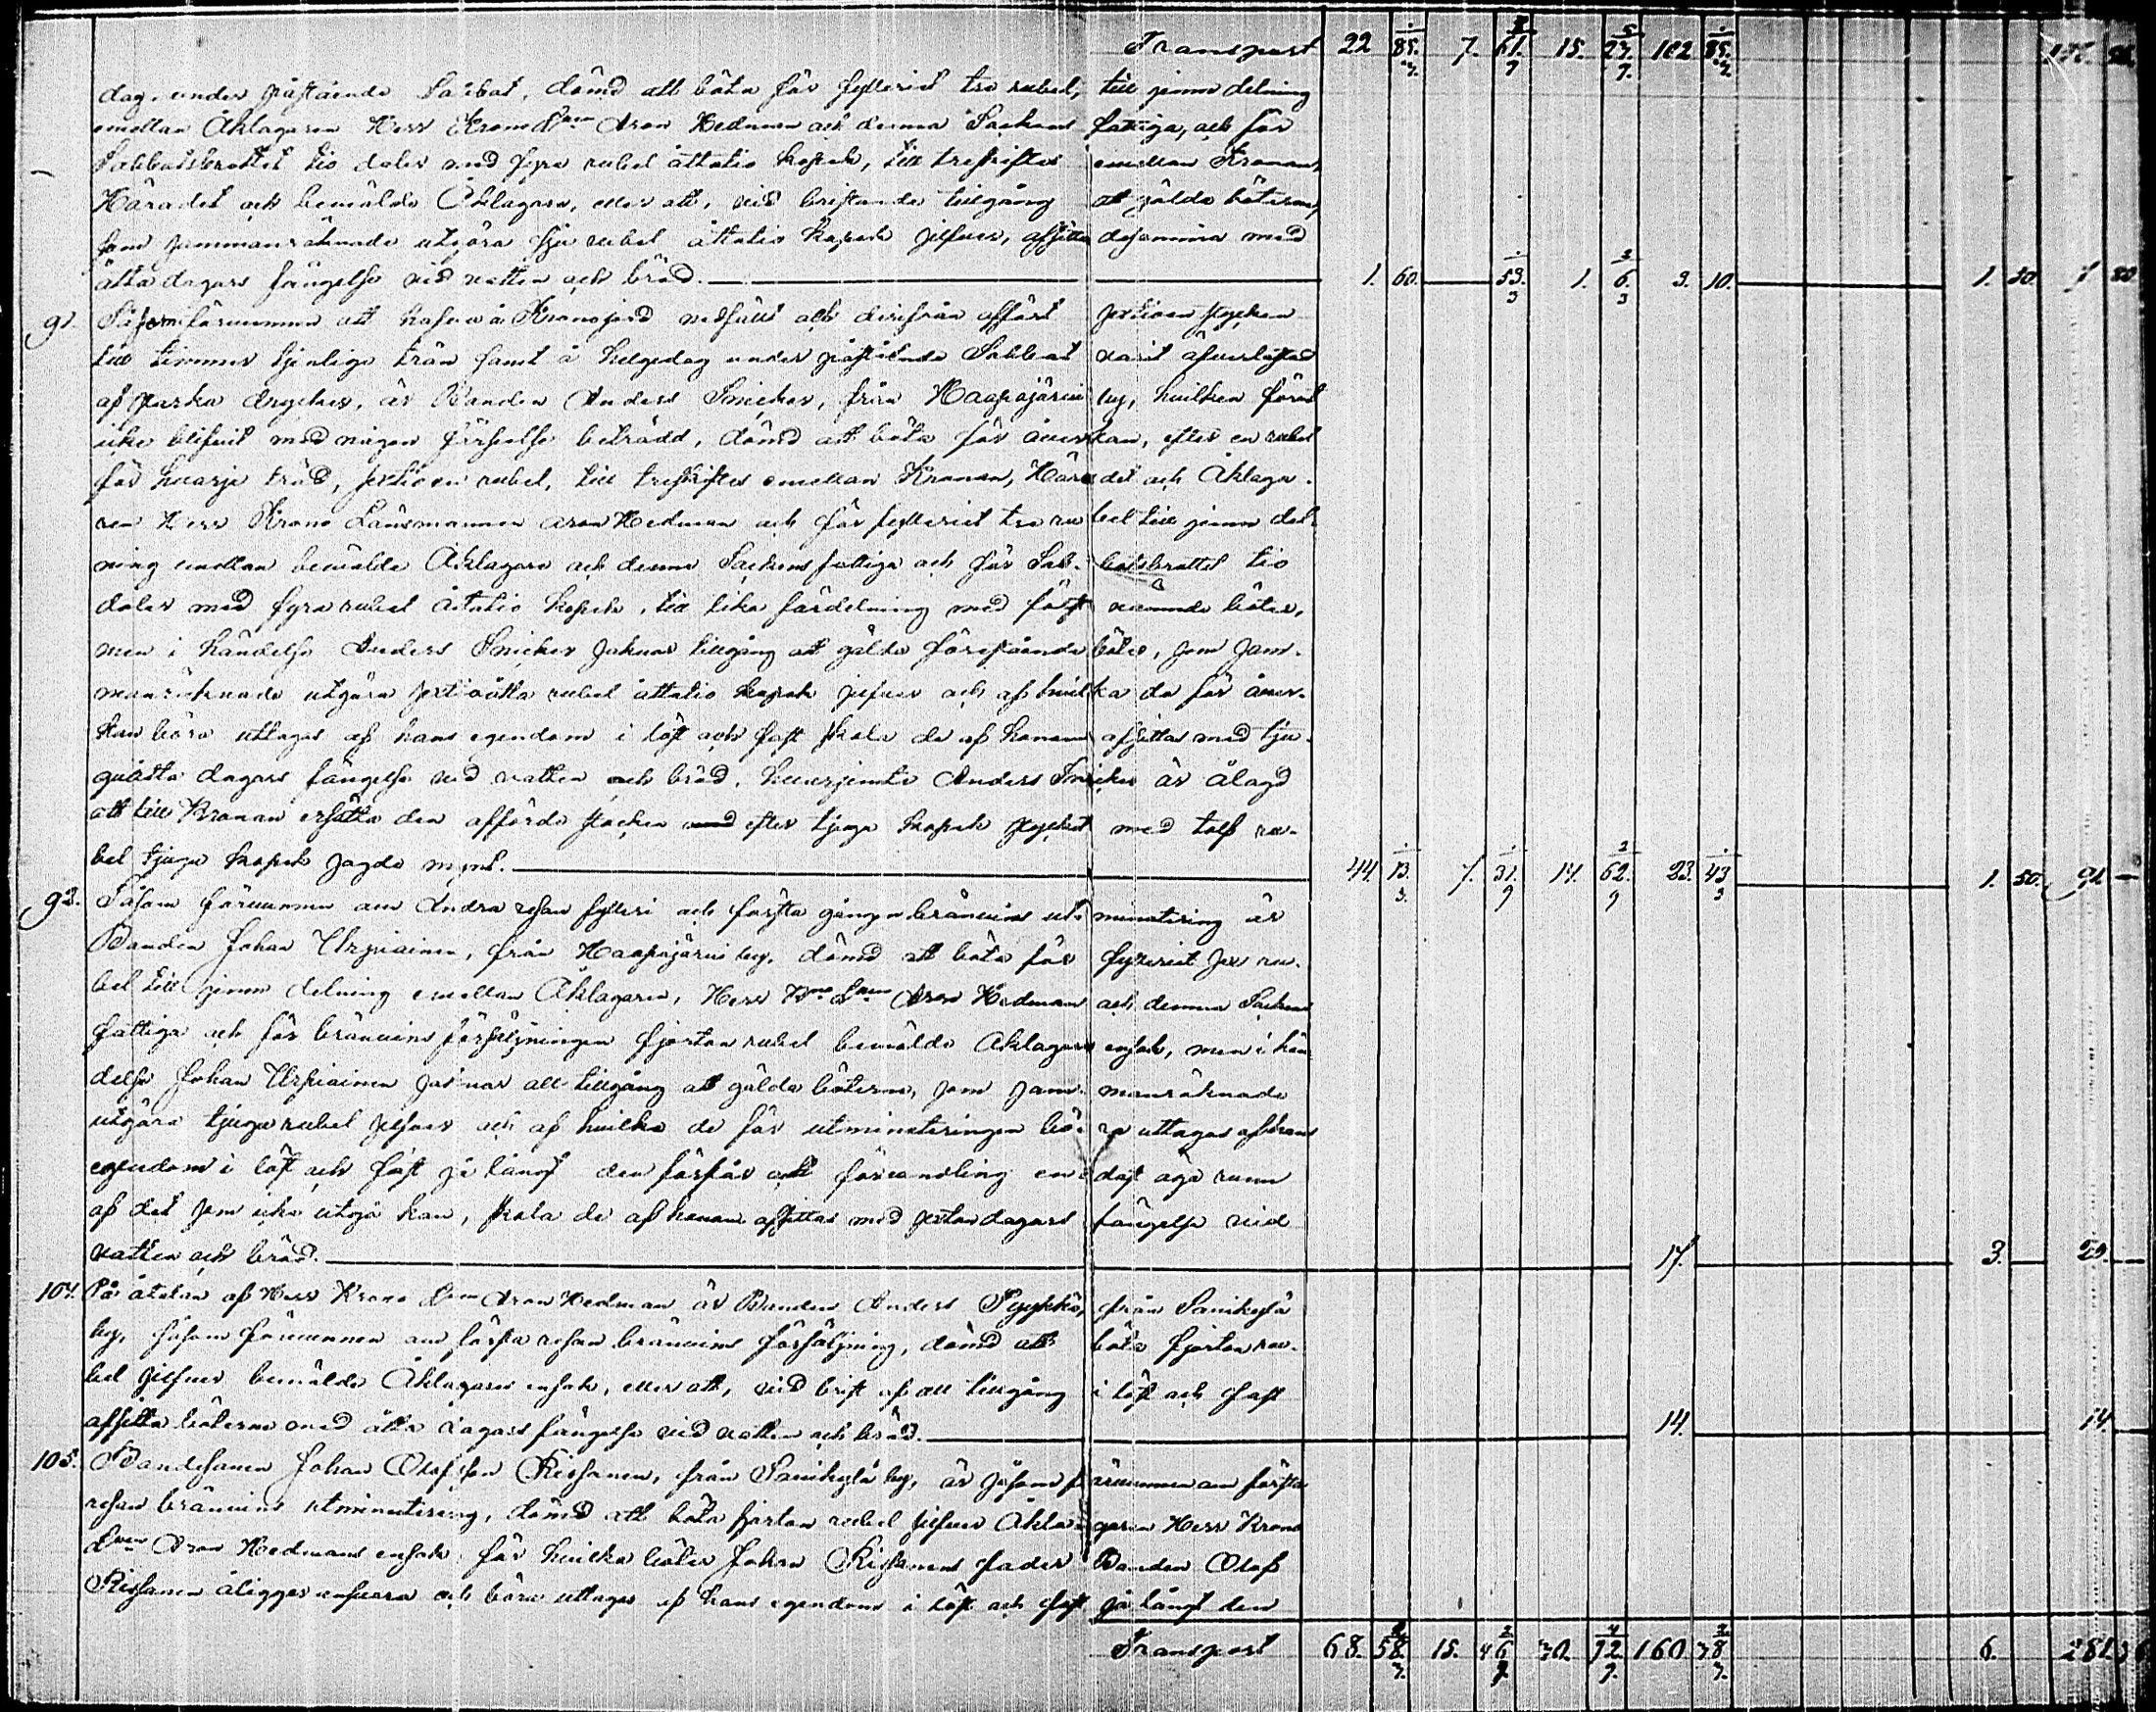 Transport 22 85 1/7. 7. 61 8/9 15. 27 5/9. 102 85 1/7.
dag under påstående Sabbat, dömd att böta för fylleriet tre rubel, till jemn delning
emellan Åklagaren Herr Krono Lmn Aron Hedman och denna Sockens fattiga, och för
Sabbatsbrottet tio daler med fyra rubel åttatio kopek, till treskiftes emellan Kronan,
Häradet och bemälde Åklagare, eller att, vid bristande tillgång at gälda böterne,
som sammanräknade utgöra sju rubel åttatio kopek silfver, afsitta desamma med
åtta dagars fängelse vid vatten och bröd. 1. 60. 53 1/3. 1. 6 2/3. 3. 10. 1. 50. 7 80
91. Såsom förvunnen att hafva å Kronojord nedfällt och derifrån affört sextioen stycken
till timmer tjenliga trän samt å helgedag under påstående Sabbat varit öfverlastad
af starka drycker, är Bonden Anders Snicker, från Haapajärvi by, hvilken förut
icke blifvit med någon förseelse beträdd, dömd att böta för åverkan, efter en rubel
för hvarje träd, sextioen rubel, till treskiftes emellan Kronan, Häradet och Åklaga-
ren Herr Krono Länsmannen Aron Hedman och för fylleriet tre rubel till jemn del-
ning emellan bemälde Åklagare och denna Sockens fattiga och för Sabbatsbrottet tio
daler med fyra rubel åttatio kopek, till lika fördelning med först nämnde böter,
men i händelse Anders Snicker saknar tillgång att gälda förestående böter, som sam-
manräknade utgöra sextioåtta rubel åttatio kopek silfver och af hvilka de för åver-
kan böra uttagas af hans egendom i löst och fast skola de af honom afsittas med tju-
guåtta dagars fängelse vid vatten och bröd, hvarjemte Anders Snicker är ålagd
att till Kronan ersätta den afförde stocken efter tjugo kopek stycket med tolf ru-
bel tjugo kopek sagde mynt. 44. 13 1/3. 7. 31 1/9. 14. 62 2/9. 23. 43 1/3 1. 50. 91. —
93. Såsom förvunnen om andra resan fylleri och första gången bränvins utminutering är
Bonden Johan Urpiainen, från Haapajärvi by, dömd att böta för fylleriet sex ru-
bel till jemn delning emellan Åklagaren, Herr Kno Lmn Aron Hedman och denna Sockens
fattiga och för bränvins försäljningen fjorton rubel bemälde Åklagare ensak, men i hän-
delse Johan Urpiainen saknar all tillgång att gälda böterna, som sammanräknade
utgöra tjugo rubel silfver och af hvilka de för utminuteringen böra uttagas af hans
egendom i löst och fast så långt den förslår och förvandling endast äga rum
af det som icke utgå kan, skola de af honom afsittas med sexton dagars fängelse vid
vatten och bröd. 17. 3. 20. —
104. På åtalan af Herr Krono Lmn Aron Hedman är Bonden Anders från Sainkylä
by, såsom förvunnen om första resan bränvins försäljning, dömd att böta fjorton ru-
bel silfver bemälde Åklagares ensak, eller att, vid brist af all tillgång i löst och fast
afsitta böterna med åtta dagars fängelse vid vatten och bröd. 14. 14.
105. Bondesonen Johan Olofsson Rissanen, från Sainkylä by, är såsom förvunnen om första
resan bränvins utminutering, dömd att böta fjorton rubel silfver Åklagaren Herr Krono
Lmn Aron Hedmans ensak, för hvilka böter Johan Rissanens fader Bonden Olof
Rissanen åligger ansvara och böra uttagas af hans egendom i löst och fast så långt den
Transport 68. 58 15. 46 30. 160 6. 281.